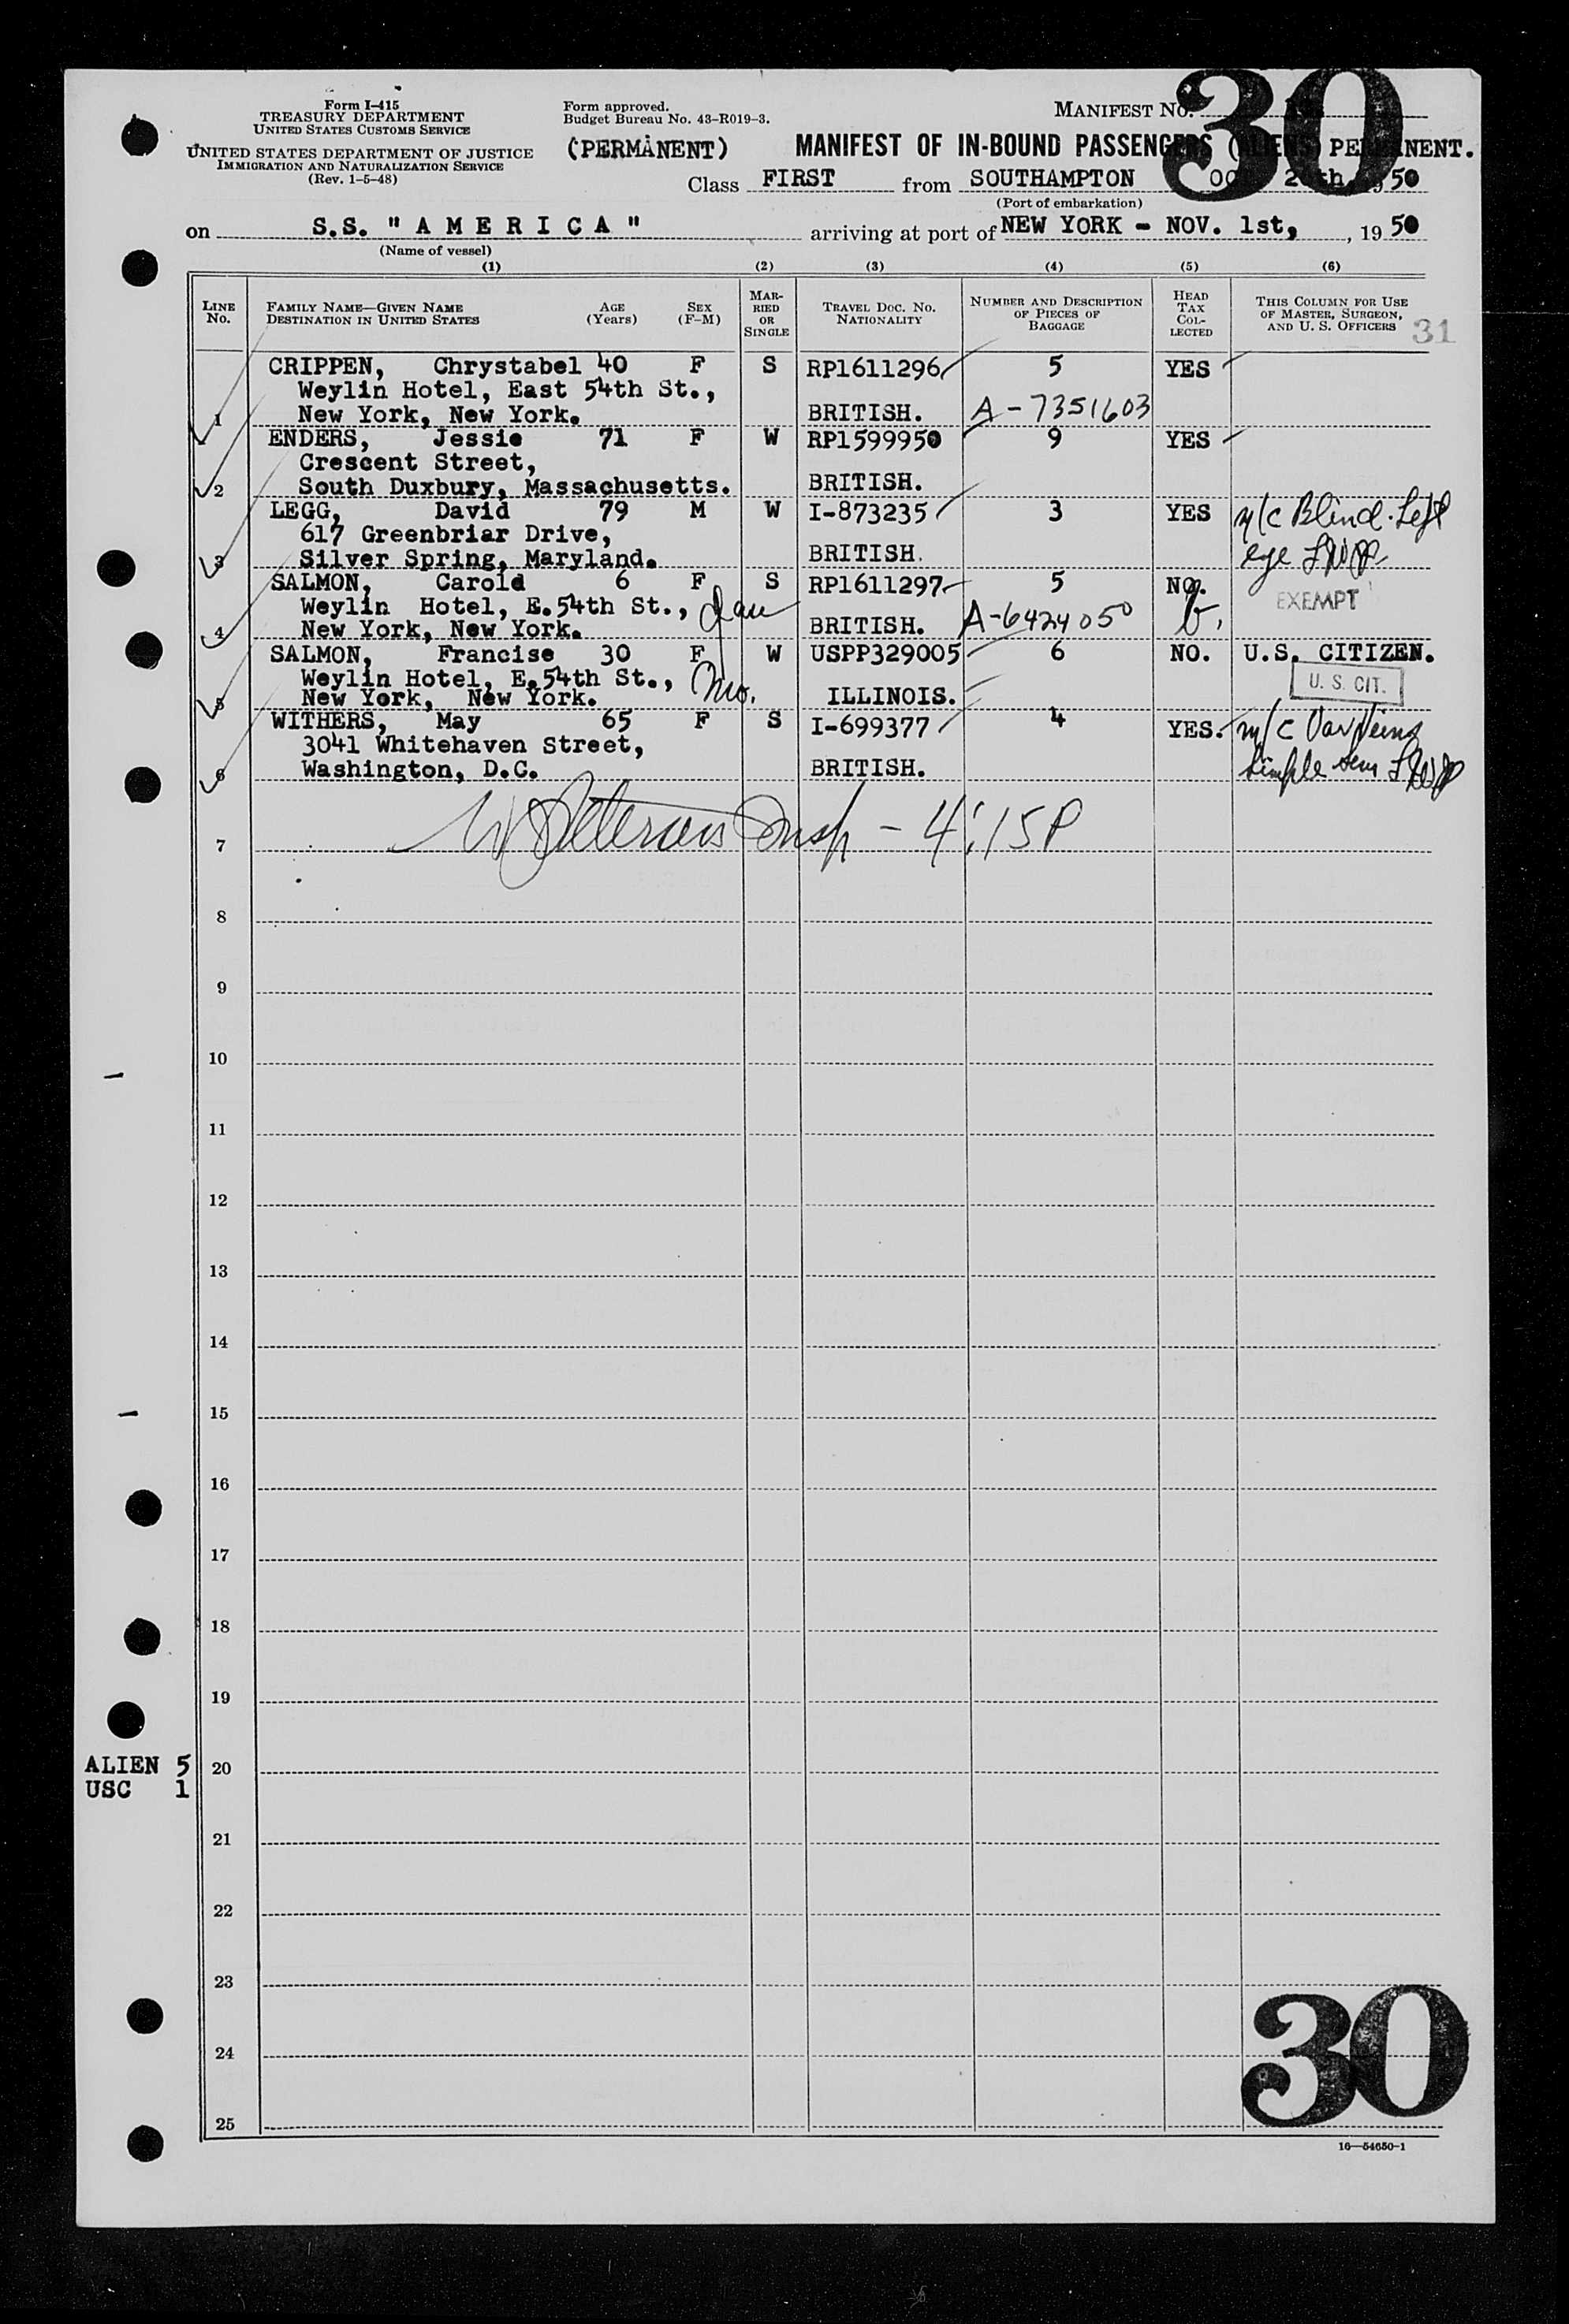 Form I-415
TREASURY DEPARTMENT
UNITED STATES CUSTOMS SERVICE
UNITED STATES DEPARTMENT OF JUSTICE
IMMIGRATION AND NATURALIZATION SERVICE
(Rev. 1-5-48)
Form approved.
Budget Bureau No. 43-R019-3.
(PERMANENT)
MANIFEST NO.
30
MANIFEST OF IN-BOUND PASSENGERS (ALIENS) PERMANENT.
Class FIRST from SOUTHAMPTON 1950
(Port of embarkation)
on S.S. "AMERICA" arriving at port of NEW YORK - NOV. 1st, , 1950
(Name of vessel)
(1) (2) (3) (4) (5) (6)
LINE No. FAMILY NAME—GIVEN NAME DESTINATION IN UNITED STATES AGE (Years) SEX (F-M) MARRIED OR SINGLE TRAVEL DOC. NO. NATIONALITY NUMBER AND DESCRIPTION OF PIECES OF BAGGAGE HEAD TAX COLLECTED THIS COLUMN FOR USE OF MASTER, SURGEON, AND U. S. OFFICERS 31
CRIPPEN, Chrystabel 40 F S RP1611296 5 YES
Weylin Hotel, East 54th St.,
1 New York, New York. BRITISH. A-7351603
ENDERS, Jessie 71 F W RP1599950 9 YES
Crescent Street,
2 South Duxbury, Massachusetts. BRITISH.
LEGG, David 79 M W I-873235 3 YES m/c Blind. Left
617 Greenbriar Drive, eye
3 Silver Spring, Maryland. BRITISH.
SALMON, Carold 6 F S RP1611297 5 NO. EXEMPT
Weylin Hotel, E.54th St., Dau
4 New York, New York. BRITISH. A-6424050
SALMON, Francise 30 F W USPP329005 6 NO. U.S. CITIZEN.
Weylin Hotel, E.54th St., Mo. U. S. CIT.
5 New York, New York. ILLINOIS.
WITHERS, May 65 F S I-699377 4 YES. m/c Var Veins
3041 Whitehaven Street,
6 Washington, D.C. BRITISH. simple
Insp - 4:15 P
7
8
9
10
11
12
13
14
15
16
17
18
19
ALIEN 5 20
USC 1
21
22
23
24
30
25
16—54650-1